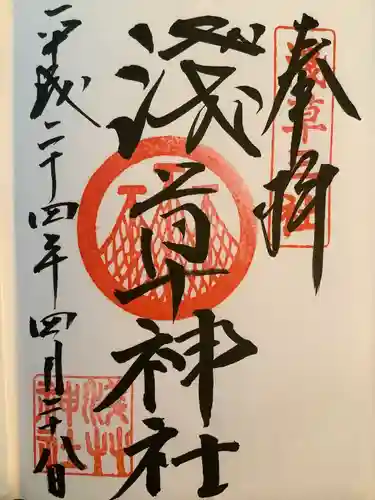 奉拝
淺草神社
平成二十四年四月二十八日
淺草神社
淺草神社